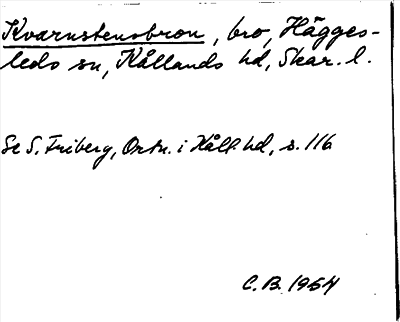 Kvarnstensbron, bro, Hägges-
leds sn, Kållands hd, Skar. l.
Se S. Friberg, Ortn. i Kåll. hd, s. 116
C. B. 1964